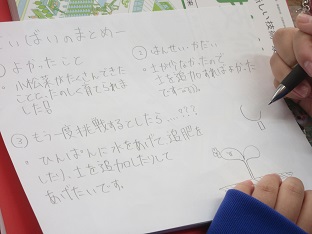 いばいのまとめー
① よかったこと
・小松菜がたくさんできた
ことと、たのしく育てられま
した!!
② はんせいかだい
土が少なかったので
土を追加すればよかった
です。
③ もう一度挑戦するとしたら....???
・ひんぱんに水をあげて追肥を
したり、土を追加したりして
あげたいです。